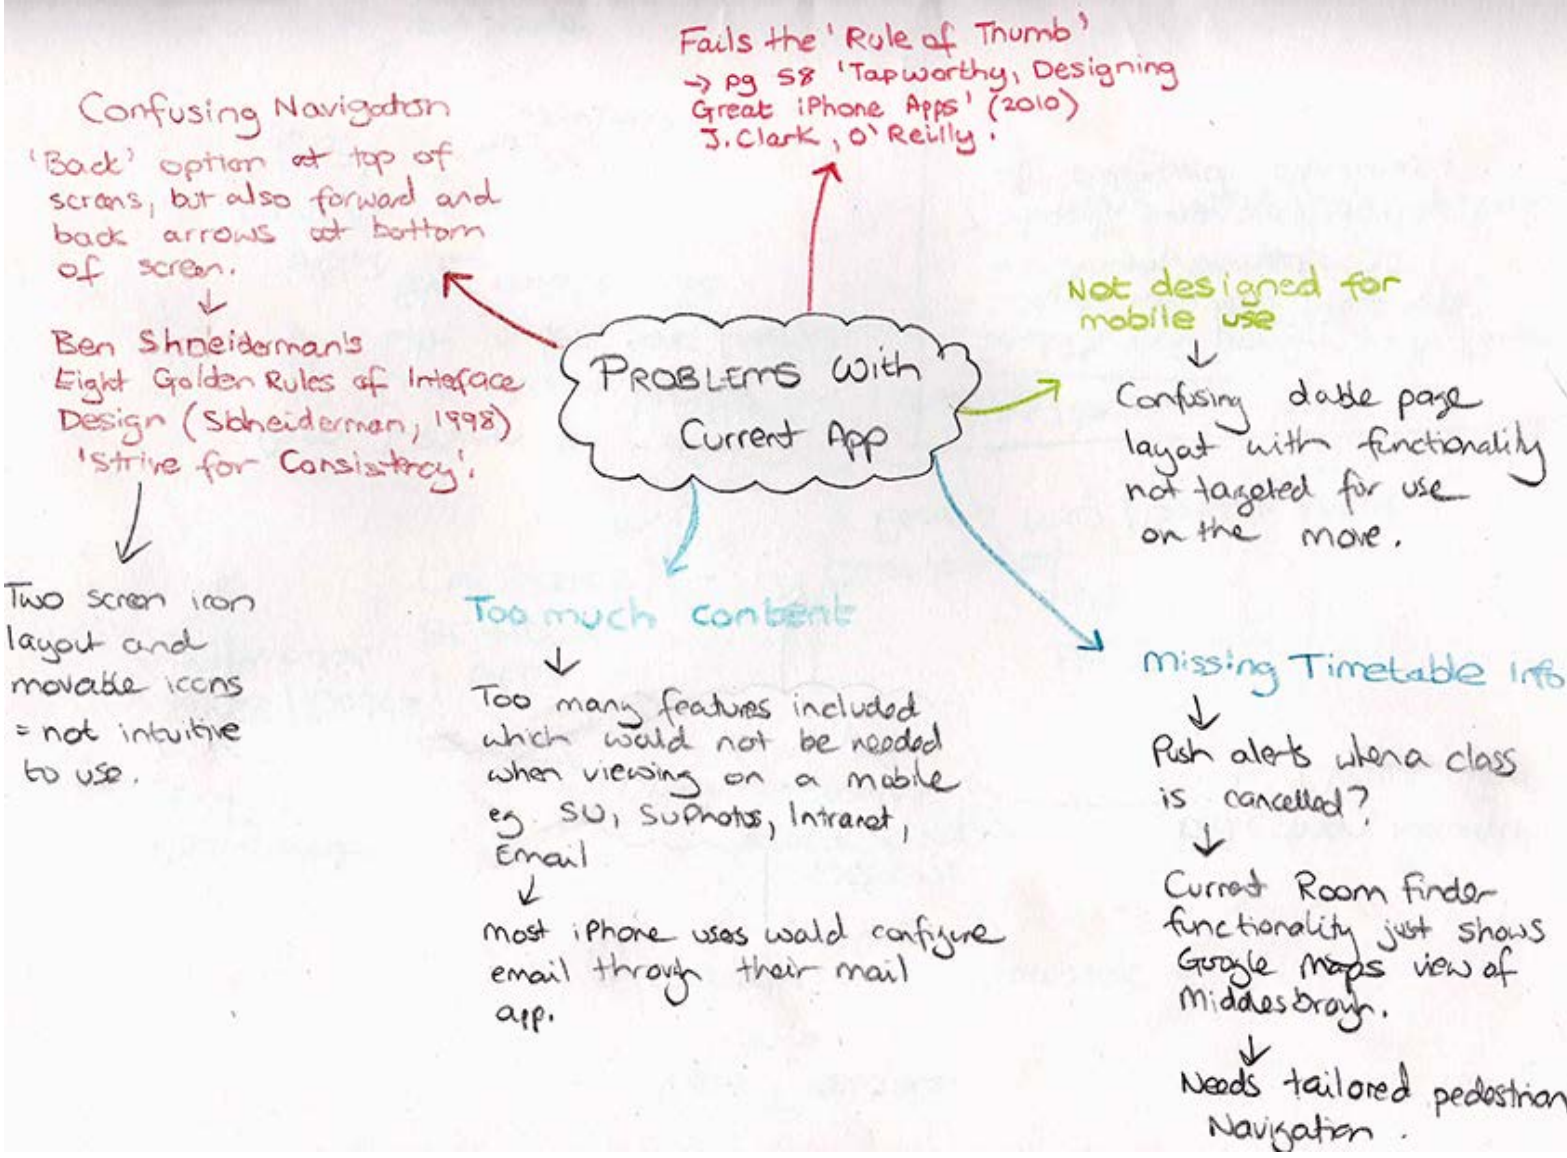 Fails the 'Rule of Thumb'
→ pg 58 'Tapworthy, Designing
Great iPhone Apps' (2010)
J. Clark, O'Reilly.
Confusing Navigation
'Back' option at top of
screens, but also forward and
back arrows at bottom
of screen.
↓
Ben Shneiderman's
Eight Golden Rules of Interface
Design (Shneiderman, 1998)
'Strive for Consistency'.
Two screen icon
layout and
movable icons
= not intuitive
to use.
PROBLEMS With
Current App
Not designed for
mobile use
↓
Confusing double page
layout with functionality
not targeted for use
on the move.
Too much content
↓
Too many features included
which would not be needed
when viewing on a mobile
eg. SU, SUPhotos, Intranet,
Email
↓
most iPhone users would configure
email through their mail
app.
Missing Timetable Info
↓
Push alerts when a class
is cancelled?
↓
Current Room finder
functionality just shows
Google Maps view of
Middlesbrough.
↓
Needs tailored pedestrian
Navigation.